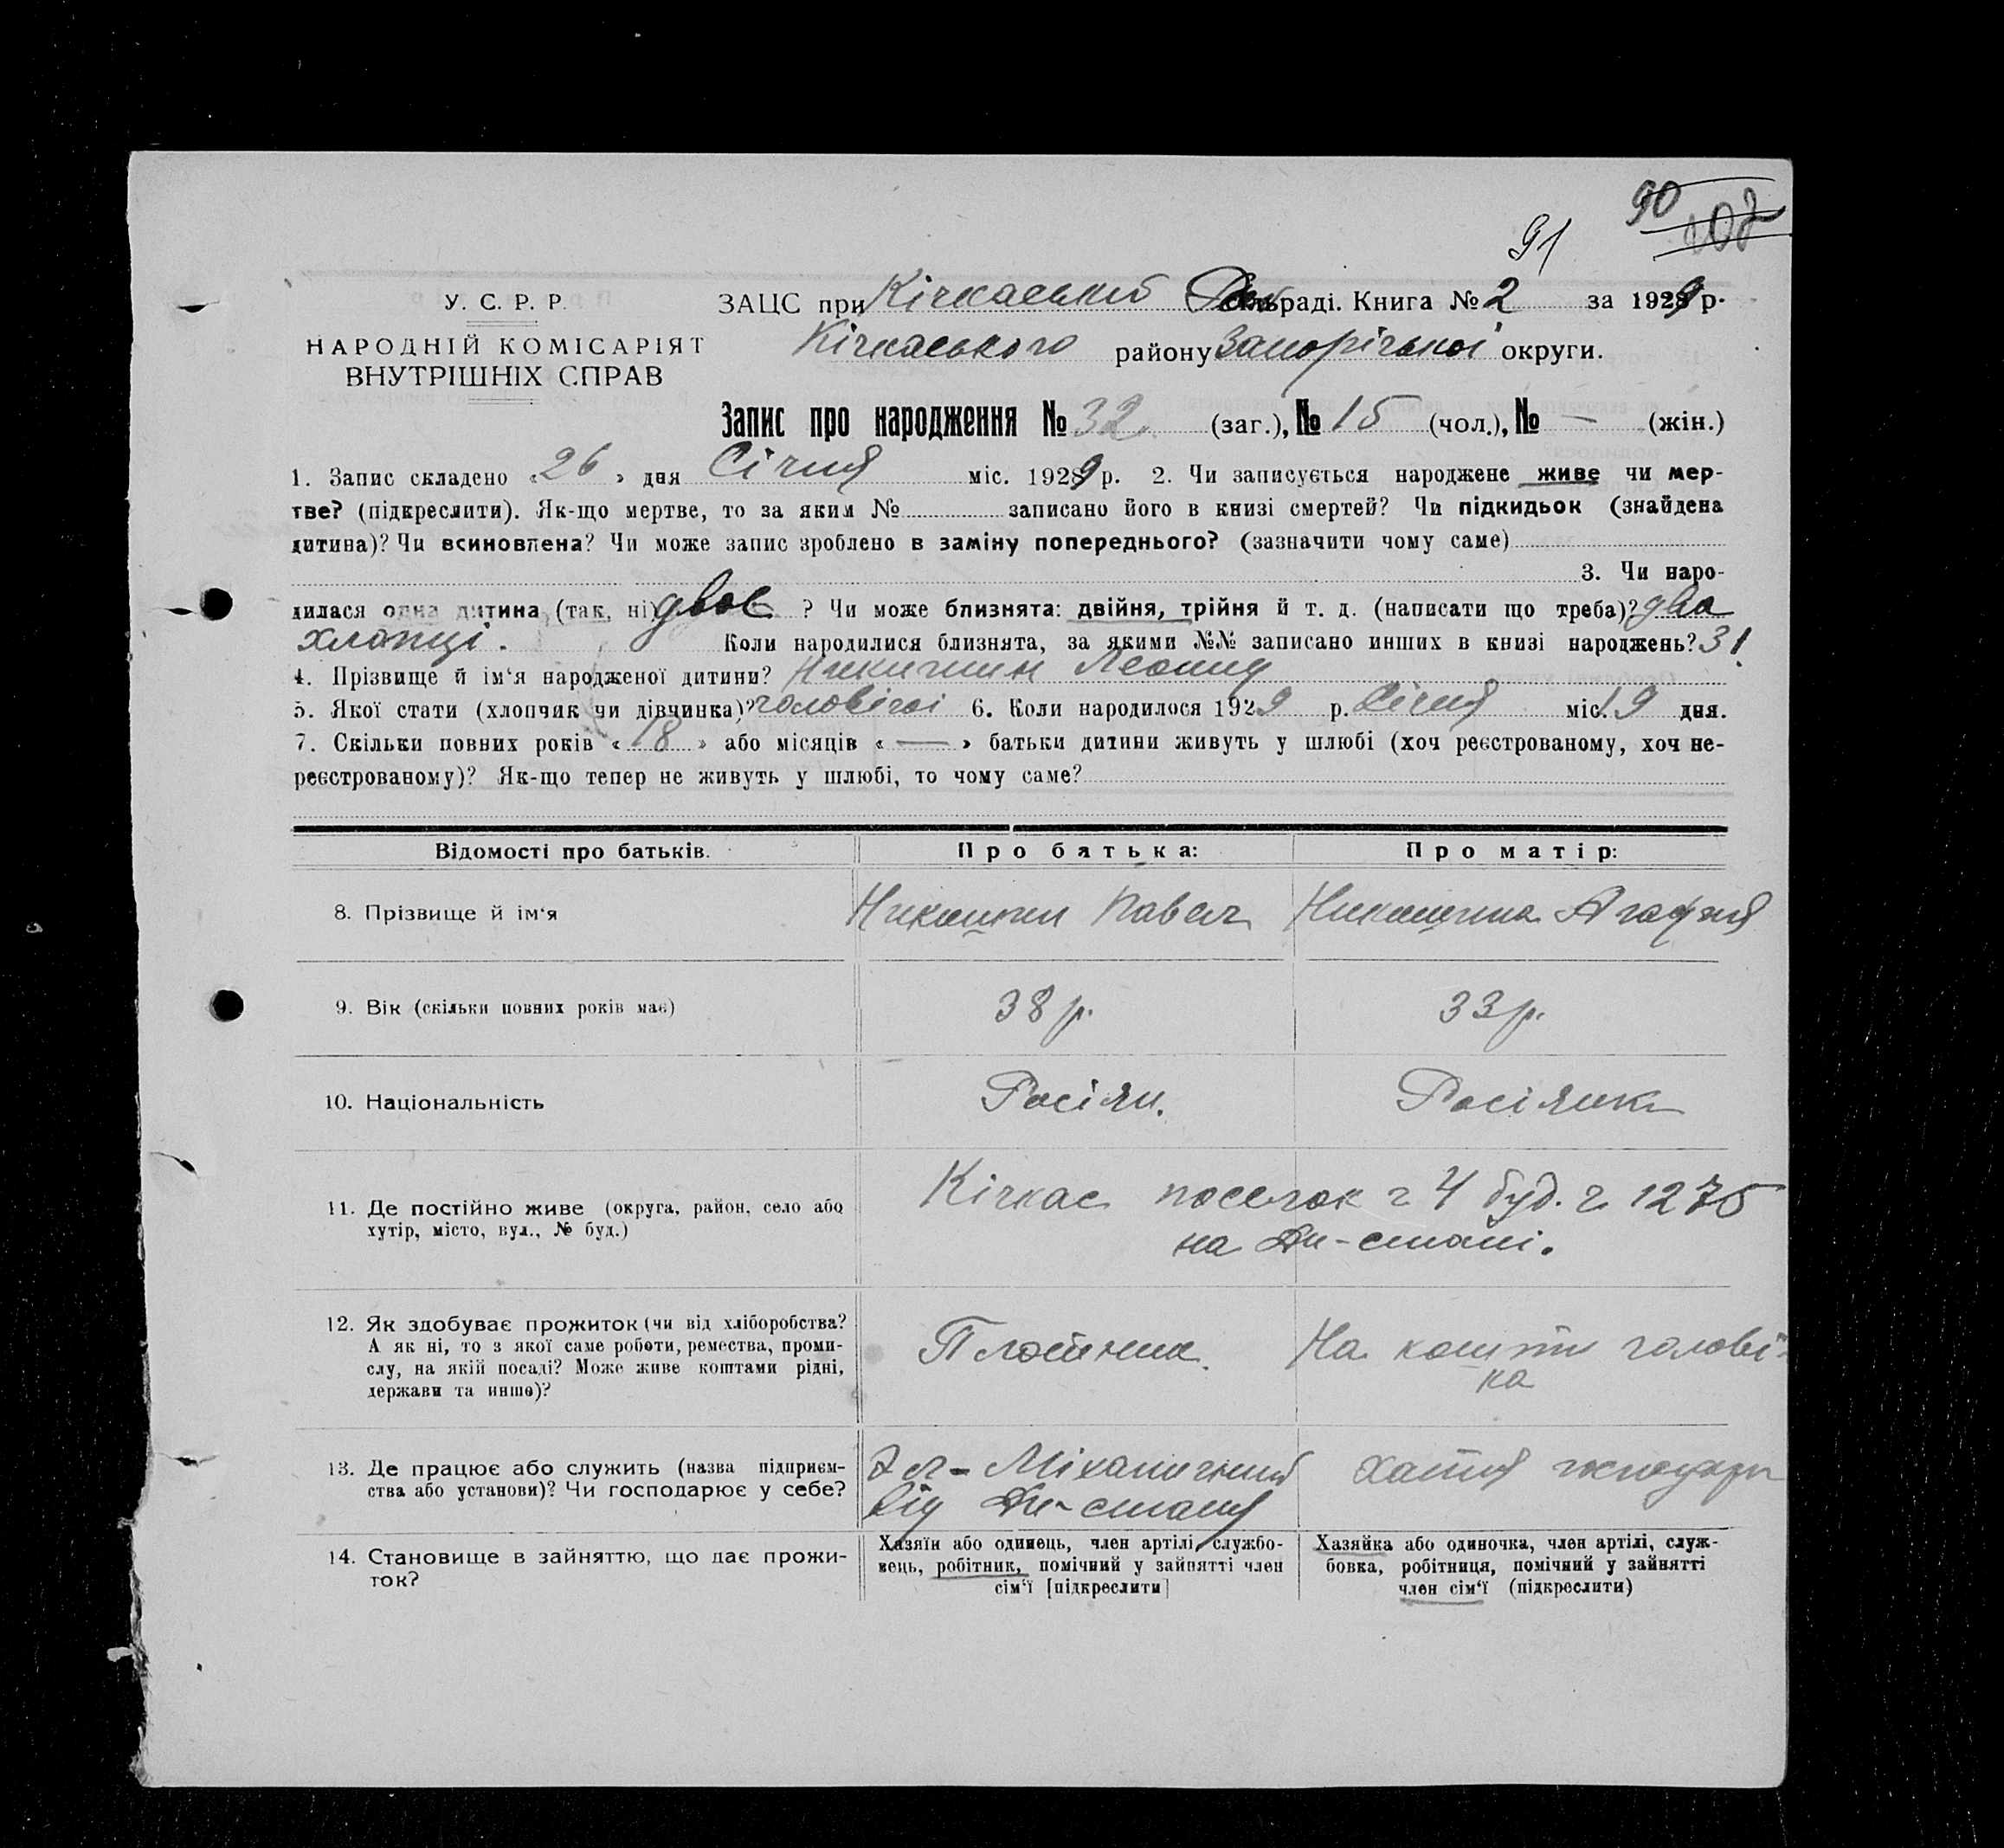 90
91
У. С. Р. Р.
НАРОДНІЙ КОМІСАРІЯТ
ВНУТРІШНІХ СПРАВ
ЗАЦС при Кічкаський раді. Книга № 2 за 1929 р.
Кічкаського району Запорізької округи.
Запис про народження № 32 (заг.), № 15 (чол.), № — (жін.)
1. Запис складено « 26 » дня Січня міс. 1929 р. 2. Чи записується народжене живе чи мер-
тве? (підкреслити). Як-що мертве, то за яким № записано його в книзі смертей? Чи підкидьок (знайдена
дитина)? Чи всиновлена? Чи може запис зроблено в заміну попереднього? (зазначити чому саме)
3. Чи наро-
дилася одна дитина (так, ні) двое ? Чи може близнята: двійня, трійня й т. д. (написати що треба)? два
хлопці. Коли народилися близнята, за якими №№ записано инших в книзі народжень? 31.
4. Прізвище й ім'я народженої дитини? Никишин Леонид
5. Якої стати (хлопчик чи дівчинка)? чоловічої 6. Коли народилося 1929 р. Січня міс. 19 дня.
7. Скільки повних років « 18 » або місяців « — » батьки дитини живуть у шлюбі (хоч реєстрованому, хоч не-
реєстрованому)? Як-що тепер не живуть у шлюбі, то чому саме?
Відомості про батьків. Про батька: Про матір:
8. Прізвище й ім'я Никишин Павел Никишина Агафия
9. Вік (скільки повних років має) 38 р. 33 р.
10. Національність Росіян. Росіянка
11. Де постійно живе (округа, район, село або
хутір, місто, вул., № буд.)
Кічкас поселок ч 4 буд. ч 1275
на Дн-стані.
12. Як здобуває прожиток (чи від хліборобства?
А як ні, то з якої саме роботи, ремества, проми-
слу, на якій посаді? Може живе коштами рідні,
держави та инше)?
Плотник. На кошти чолові-
ка
13. Де працює або служить (назва підприєм-
ства або установи)? Чи господарює у себе?
Міханичний
від Дн-стана
Хатня господар
14. Становище в зайняттю, що дає прожи-
ток?
Хазяїн або одинець, член артілі, службо-
вець, робітник, помічний у зайнятті член
сім'ї [підкреслити]
Хазяйка або одиночка, член артілі, служ-
бовка, робітниця, помічний у зайнятті
член сім'ї (підкреслити)